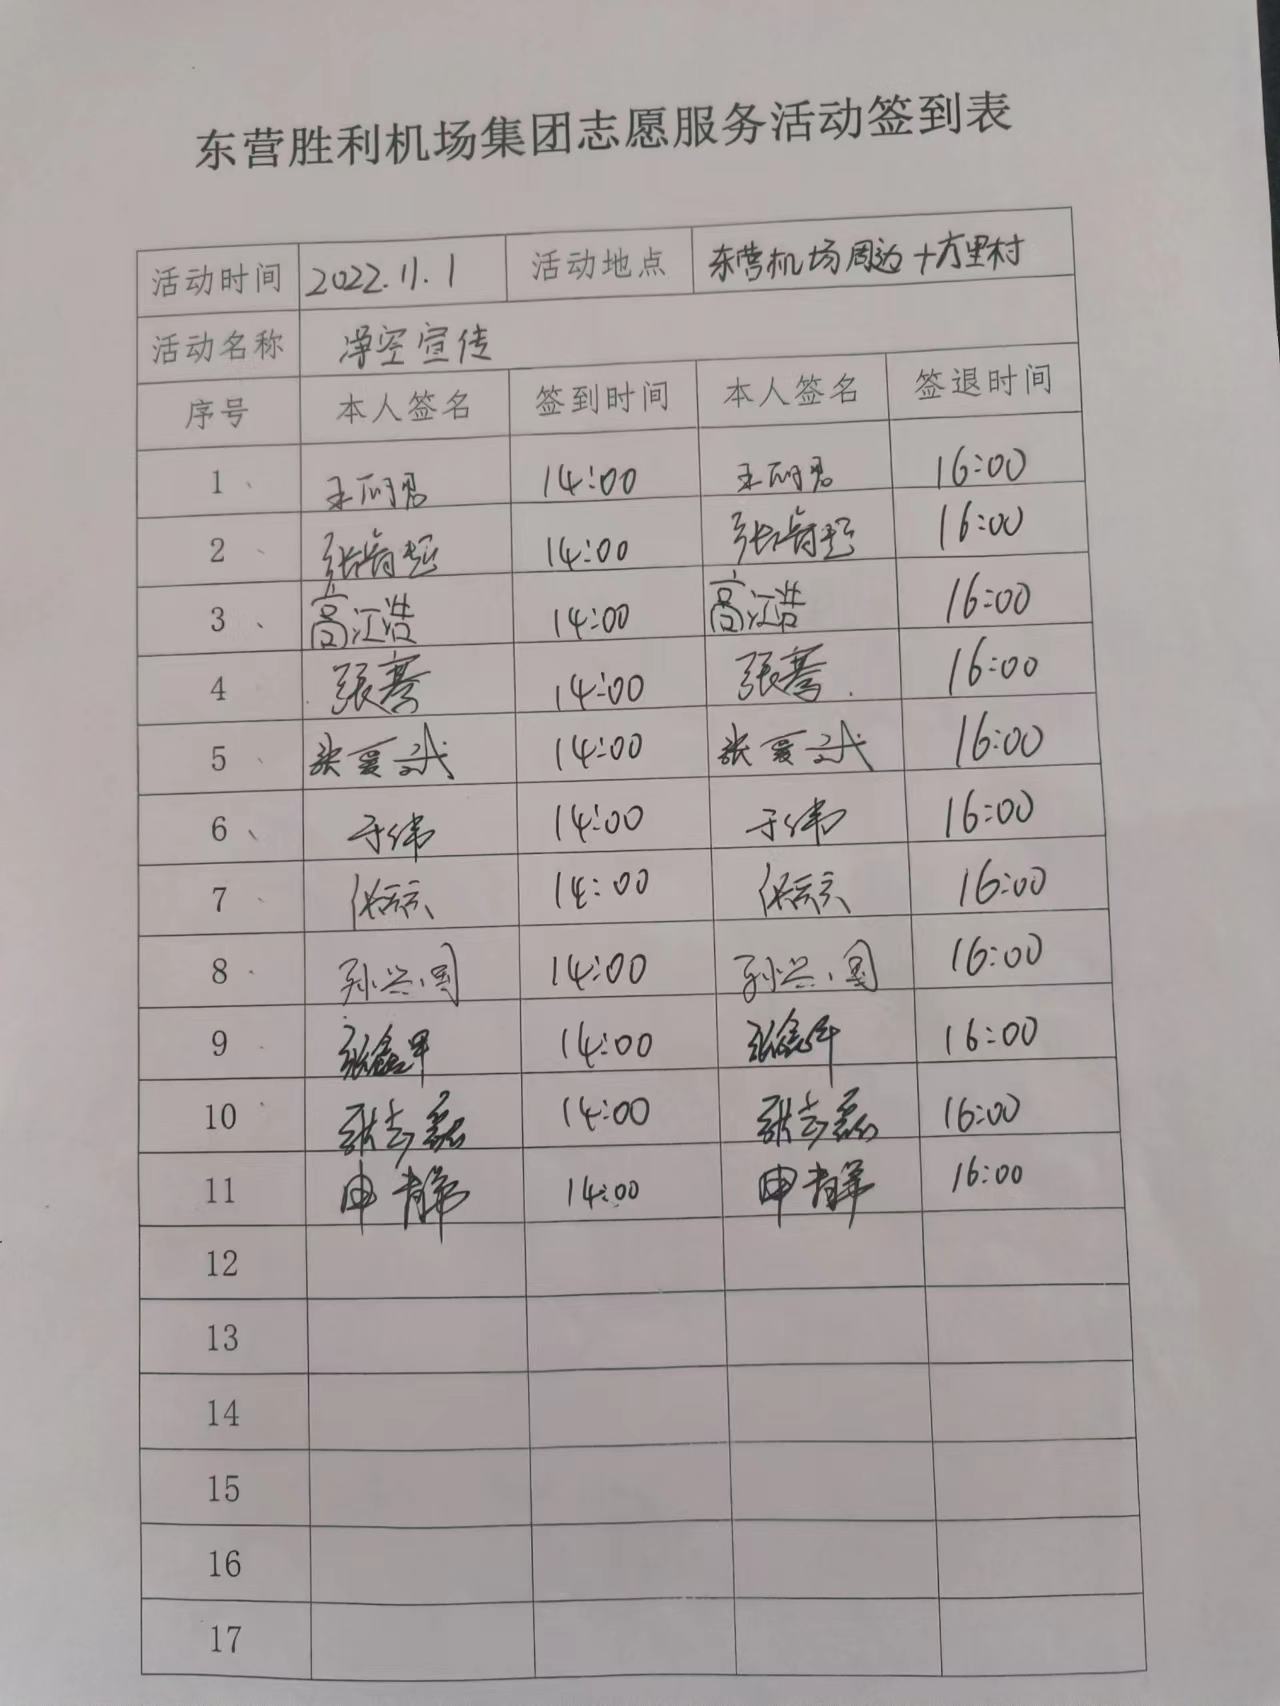 东营胜利机场集团志愿服务活动签到表
活动时间 2022.11.1 活动地点 东营机场周边十方里村
活动名称 净空宣传
序号 本人签名 签到时间 本人签名 签退时间
1 14:00 16:00
2 14:00 16:00
3 高江浩 14:00 高江浩 16:00
4 张骞 14:00 张骞 16:00
5 14:00 16:00
6 于伟 14:00 于伟 16:00
7 14:00 16:00
8 孙兴国 14:00 孙兴国 16:00
9 14:00 16:00
10 张志磊 14:00 张志磊 16:00
11 申静 14:00 申静 16:00
12
13
14
15
16
17